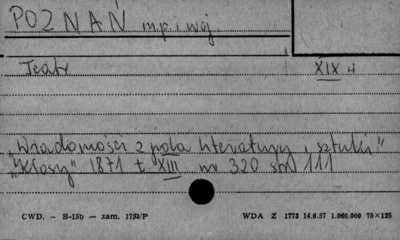 POZNAŃ m.p. i woj
Teatr XIX w
"Wiadomości z pola literatury i sztuki"
"Kłosy" 1871 t. XIII nr 320 str 111
CWD. — B-15b — zam. 1753/P WDA Z 1773 14.6.57 1.000.000 75×125